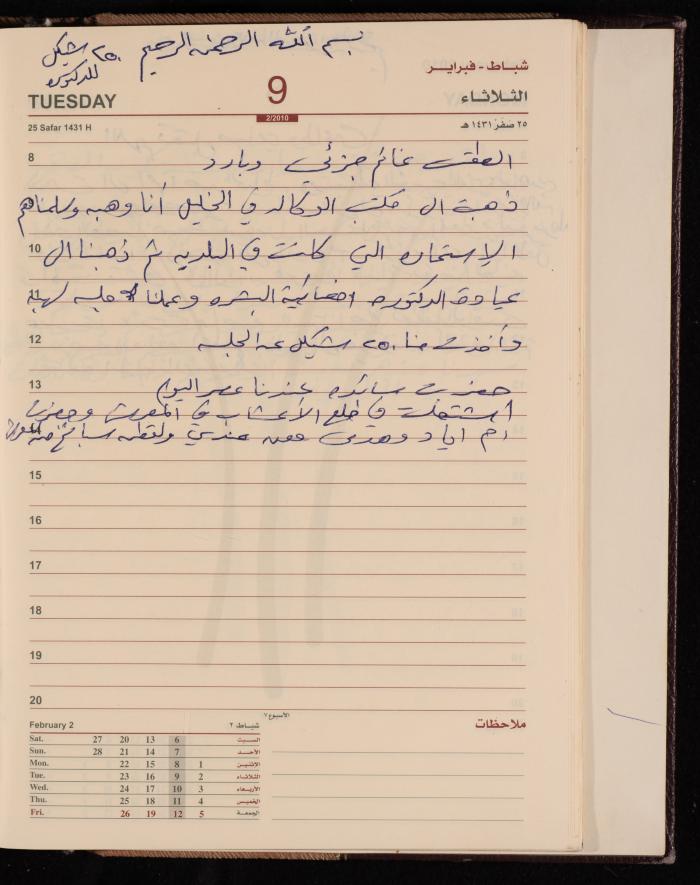 بسم الله الرحمن الرحيم
٢٥٠ شيكل
للدكتوره
شباط - فبراير
TUESDAY
9
الثلاثاء
2/2010
25 Safar 1431 H
٢٥ صفر ١٤٣١ هـ
8 الطقس غائم جزئي وبارد
ذهبت ال مكتب الوكاله في الخليل أنا وهبه وسلمناهم
10 الإستماره التي كانت في البلديه ثم ذهبنا ال
11 عيادة الدكتوره اخصائية البشره وعملنا جلسه لهبه
12 وأخذت منا ٢٥٠ شيكل عن الجلسه
13 حضرت سائده عندنا عصر اليوم
اشتغلت في خلع الأعشاب في المغرس وحضرت
ام اياد وهدى عندي ولقطن سبانخ من
15
16
17
18
19
20
February 2
شباط ٢
الأسبوع ٧
ملاحظات
Sat. 27 20 13 6 السبت
Sun. 28 21 14 7 الأحد
Mon. 22 15 8 1 الإثنين
Tue. 23 16 9 2 الثلاثاء
Wed. 24 17 10 3 الأربعاء
Thu. 25 18 11 4 الخميس
Fri. 26 19 12 5 الجمعة